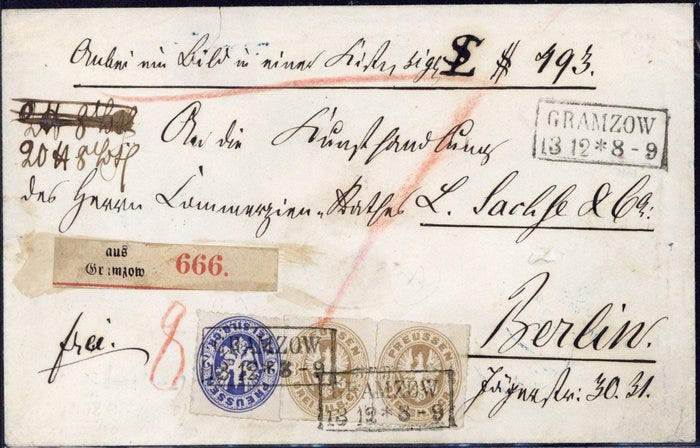 Anbei ein Bild in einer Kiste, sign. 193.
GRAMZOW
13 12 * 8 - 9
20 ℔ 8
An die Kunsthandlung
des Herrn Commerzien-Rathes L. Sachse & Co:
aus
Gramzow
666.
Berlin.
Jägerstr: 30.31.
frei.
8
PREUSSEN
GRAMZOW
13 12 * 8 - 9
PREUSSEN
PREUSSEN
GRAMZOW
13 12 * 8 - 9